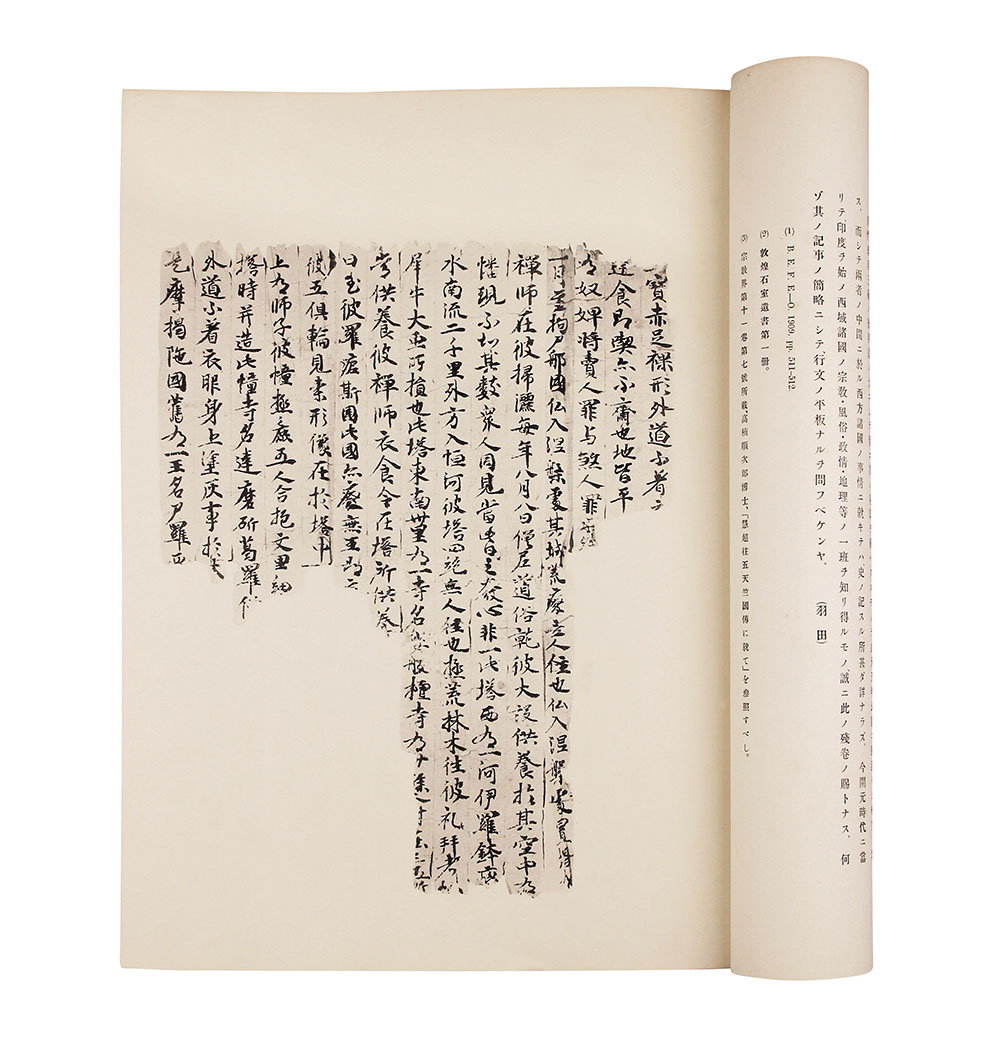 ス、而シテ兩者ノ中間ニ於ル西方諸國ノ事情ニ就キテハ、史ノ記スル所甚ダ詳ナラズ、今開元時代ニ當
リテ、印度ヲ始メ西域諸國ノ宗敎・風俗・政情・地理等ノ一班ヲ知リ得ルモノ、誠ニ此ノ殘卷ノ賜トナス、何
ゾ其ノ記事ノ簡略ニシテ、行文ノ平板ナルヲ問フベケンヤ。 (羽田)
(1) B. E. F. E—O. 1909. pp. 511–512.
(2) 敦煌石室遺書第一册。
(3) 宗敎界第十一卷第七號所載、高楠順次郎博士、「慧超往五天竺國傳に就て」を參照すべし。
寶赤足裸形外道不著
逕食即喫亦不齋也地皆平
有奴婢將賣人罪与煞人罪
一月至拘尸那國仏入涅槃處其城荒廢无人住也仏入涅槃處置塔
禅師在彼掃灑每年八月八日僧尼道俗就彼大設供養於其空中有
幡現不知其數衆人同見當此之日發心非一此塔西有一河伊羅鉢底
水南流二千里外方入恒河彼塔四絶無人住也極荒林木往彼礼拜者
犀牛大虫所損也此塔東南卅里有一寺名娑般檀寺有
常供養彼禅師衣食令在塔所供養
日至彼羅疷斯國此國亦廢無王即
彼五俱輪見素形像在於塔中
上有師子彼幢極麁五人合抱文里細
塔時并造此幢寺名達磨斫葛羅僧
外道不着衣服身上塗灰事於大
是摩揭陁國舊有一王名尸羅